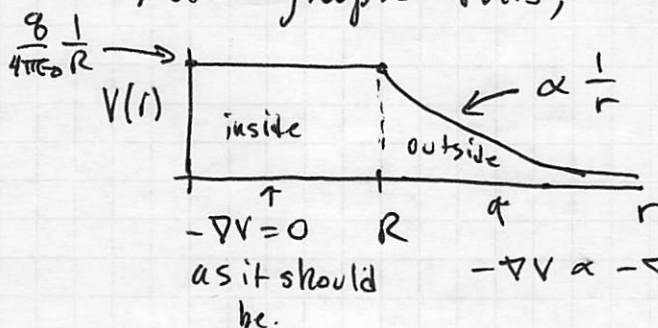 q/4πε₀ 1/R
V(r)
∝ 1/r
inside
outside
R
r
-∇V = 0
as it should
be.
-∇V ∝ -∇